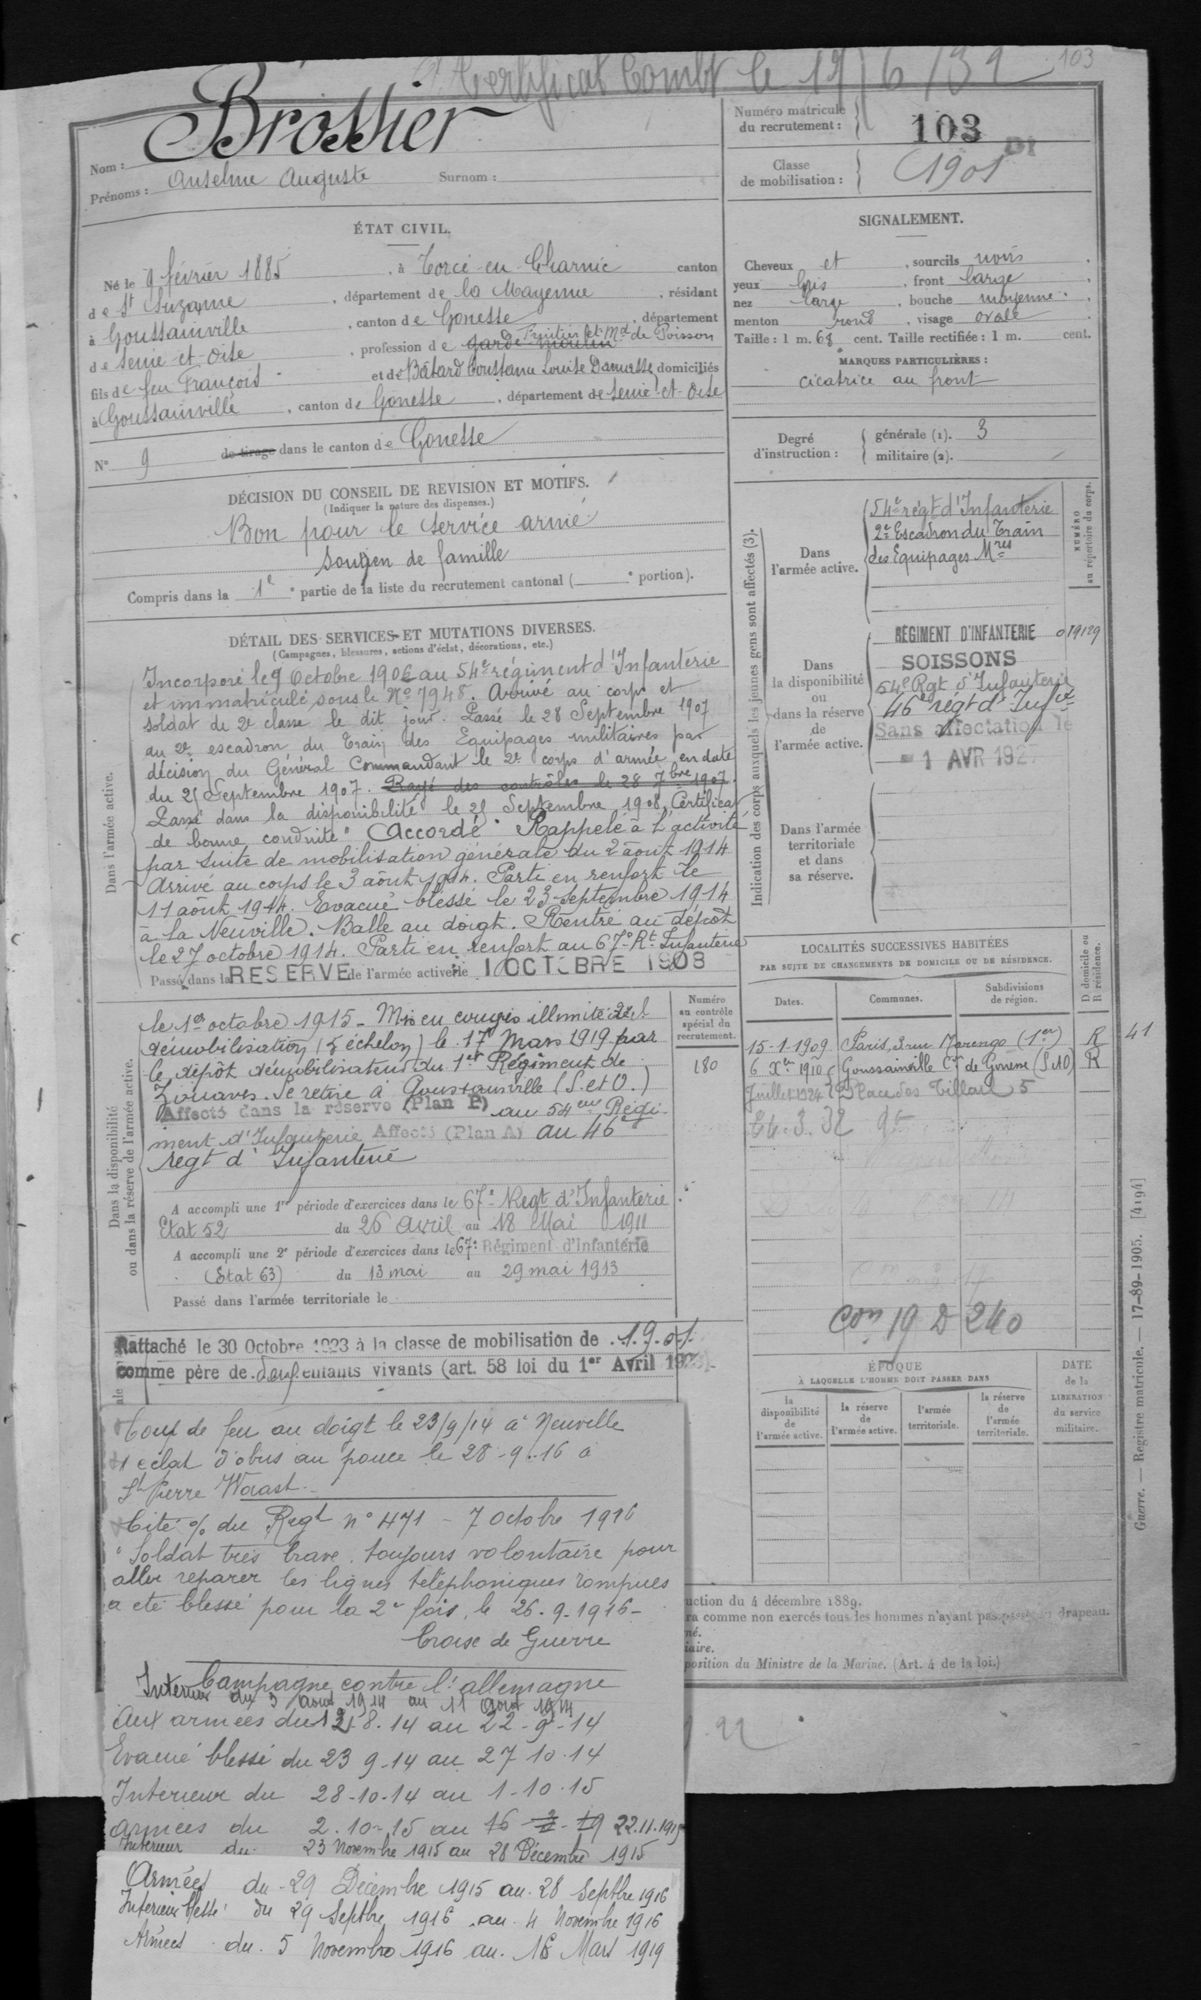 Certificat Combt le 19/6/32
103
Nom : Brossier
Prénoms : Anselme Auguste Surnom :
Numéro matricule du recrutement : 103
Classe de mobilisation : 1901
ÉTAT CIVIL.
Né le 9 février 1885, à Torcé-en-Charnie canton
de St Suzanne, département de la Mayenne, résidant
à Goussainville, canton de Gonesse, département
de Seine-et-Oise, profession de garde moulin Fruitier et Md de Poisson
fils de feu François et de Bâtard Constance Louise domiciliés
à Goussainville, canton de Gonesse, département de Seine-et-Oise
N° 9 de tirage dans le canton de Gonesse
SIGNALEMENT.
Cheveux et, sourcils noirs
yeux gris, front large
nez large, bouche moyenne
menton rond, visage ovale
Taille : 1 m. 68 cent. Taille rectifiée : 1 m. cent.
MARQUES PARTICULIÈRES :
cicatrice au front
Degré d'instruction : générale (1). 3
militaire (2).
DÉCISION DU CONSEIL DE REVISION ET MOTIFS.
(Indiquer la nature des dispenses.)
Bon pour le service armé
Soutien de famille
Compris dans la 1e partie de la liste du recrutement cantonal ( ° portion).
DÉTAIL DES SERVICES ET MUTATIONS DIVERSES.
(Campagnes, blessures, actions d'éclat, décorations, etc.)
Dans l'armée active.
Incorporé le 9 Octobre 1906 au 54e régiment d'Infanterie
et immatriculé sous le No 7948. Arrivé au corps et
soldat de 2e classe le dit jour. Passé le 28 Septembre 1907
au 2e escadron du Train des Equipages militaires par
décision du Général Commandant le 2e corps d'armée en date
du 25 Septembre 1907. Rayé des contrôles le 28 7bre 1907.
Passé dans la disponibilité le 25 Septembre 1908. Certificat
de bonne conduite "Accordé" Rappelé à l'activité
par suite de mobilisation générale du 2 août 1914
Arrivé au corps le 3 août 1914. Parti en renfort le
11 août 1914. Evacué blessé le 23 septembre 1914
à la Neuville. Balle au doigt. Rentré au dépôt
le 27 octobre 1914. Parti en renfort au 67e Rt Infanterie
Passé dans la RESERVE de l'armée active le 1 OCTOBRE 1908
Dans la disponibilité ou dans la réserve de l'armée active.
le 1er octobre 1915. Mis en congé illimité de
démobilisation (5e échelon) le 17 Mars 1919 par
le dépôt démobilisateur du 1er Régiment de
Zouaves. Se retire à Goussainville (S. et O.)
Affecté dans la réserve (Plan P) au 54eme Régi
ment d'Infanterie Affecté (Plan A) au 46e
regt d'Infanterie
Numéro au contrôle spécial du recrutement.
180
A accompli une 1re période d'exercices dans le 67e Regt d'Infanterie
Etat 52 du 26 Avril au 18 Mai 1911
A accompli une 2e période d'exercices dans le 67e Régiment d'Infanterie
(Etat 63) du 13 mai au 29 mai 1913
Passé dans l'armée territoriale le
Rattaché le 30 Octobre 1923 à la classe de mobilisation de 1901
comme père de deux enfants vivants (art. 58 loi du 1er Avril 1923).
Indication des corps auxquels les jeunes gens sont affectés (3).
NUMÉRO au répertoire du corps.
Dans l'armée active.
54e régt d'Infanterie
2e Escadron du Train
des Equipages Mres
Dans la disponibilité ou dans la réserve de l'armée active.
REGIMENT D'INFANTERIE 019129
SOISSONS
54e Rgt d'Infanterie
46e régt d'Infie
Sans affectation le
1 AVR 1927
Dans l'armée territoriale et dans sa réserve.
LOCALITÉS SUCCESSIVES HABITÉES
PAR SUITE DE CHANGEMENTS DE DOMICILE OU DE RÉSIDENCE.
Dates. Communes. Subdivisions de région. D domicile ou R résidence.
15-1-1909 Paris, 3 rue Marengo (1er) R 41
6 Xbre 1910 Goussainville Cn de Gonesse (S&O) R
Juillet 1924 Place des 5
Con 19 D 240
ÉPOQUE
À LAQUELLE L'HOMME DOIT PASSER DANS
la disponibilité de l'armée active.
la réserve de l'armée active.
l'armée territoriale.
la réserve de l'armée territoriale.
DATE de la LIBÉRATION du service militaire.
Guerre. — Registre matricule. — 17-89-1905. [4194]
uction du 4 décembre 1889.
ra comme non exercés tous les hommes n'ayant pas drapeau.
né.
iaire.
position du Ministre de la Marine. (Art. 4 de la loi.)
Coup de feu au doigt le 23/9/14 à Neuville
1 éclat d'obus au pouce le 28-9-16 à
St Pierre Waast
Cité % du Regt n° 471 - 7 octobre 1916
"Soldat très brave, toujours volontaire pour
aller réparer les lignes téléphoniques rompues
a été blessé pour la 2e fois, le 26-9-1916-
Croix de Guerre
Campagne contre l'allemagne
Intérieur du 3 août 1914 au 11 août 1914
Aux armées du 12-8-14 au 22-9-14
Evacué blessé du 23 9-14 au 27-10-14
Intérieur du 28-10-14 au 1-10-15
Armées du 2-10-15 au 22.11.1915
Intérieur du 23 Novembre 1915 au 28 Décembre 1915
Armées du 29 Décembre 1915 au 28 Septbre 1916
Intérieur blessé du 29 Septbre 1916 au 4 Novembre 1916
Armées du 5 Novembre 1916 au 16 Mars 1919